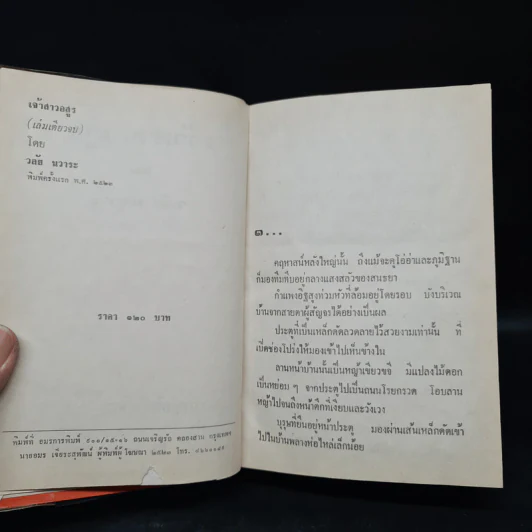 เจ้าสาวอสูร
(เล่มเดียวจบ)
โดย
วลัย นวาระ
พิมพ์ครั้งแรก พ.ศ. ๒๕๒๓
ราคา ๑๒๐ บาท
พิมพ์ที่ อมรการพิมพ์ ถนนเจริญรัถ คลองสาน กรุงเทพฯ
นายอมร ผู้พิมพ์ผู้โฆษณา ๒๕๒๓ โทร.
๑...
คฤหาสน์หลังใหญ่นั้น ถึงแม้จะดูโอ่อ่าและภูมิฐาน
ก็มองทึมทึบอยู่กลางแสงสลัวของสนธยา
กำแพงอิฐสูงท่วมหัวที่ล้อมอยู่โดยรอบ บังบริเวณ
บ้านจากสายตาผู้สัญจรได้อย่างเป็นผล
ประตูที่เป็นเหล็กดัดลวดลายไว้สวยงามเท่านั้น ที่
เปิดช่องโปร่งให้มองเข้าไปเห็นข้างใน
ลานหน้าบ้านนั้นเป็นหญ้าเขียวขจี มีแปลงไม้ดอก
เป็นหย่อม ๆ จากประตูไปเป็นถนนโรยกรวด โอบลาน
หญ้าไปจนถึงหน้าตึกที่เงียบและวังเวง
บุรุษที่ยืนอยู่หน้าประตู มองผ่านเส้นเหล็กดัดเข้า
ไปในบ้านพลางห่อไหล่เล็กน้อย